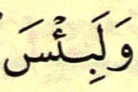 وَلَبِئْسَ